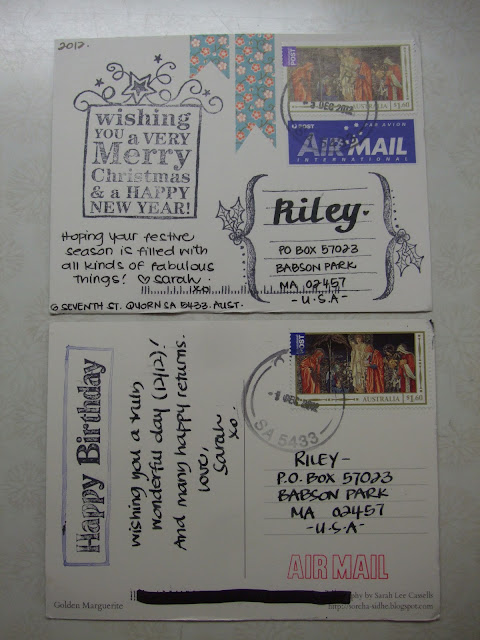 2012.
wishing
YOU a VERY
Merry
Christmas
& a HAPPY
NEW YEAR!
Hoping your festive
season is filled with
all kinds of fabulous
things! ♡ Sarah.
xo
6 SEVENTH ST. QUORN SA 5433. AUST.
POST
AUSTRALIA $1.60
- 3 DEC 2012
POST PAR AVION
AIR MAIL
INTERNATIONAL
Riley.
PO BOX 57023
BABSON PARK
MA 02457
- U.S.A -
Happy Birthday
Wishing you a truly
wonderful day (12/12)!
And many happy returns.
Love,
Sarah
xo.
POST
AUSTRALIA $1.60
DEC 2012
SA 5433
RILEY -
P.O. BOX 57023
BABSON PARK
MA 02457
- U.S.A -
AIR MAIL
Golden Marguerite
by Sarah Lee Cassells
http://sorcha-sidhe.blogspot.com